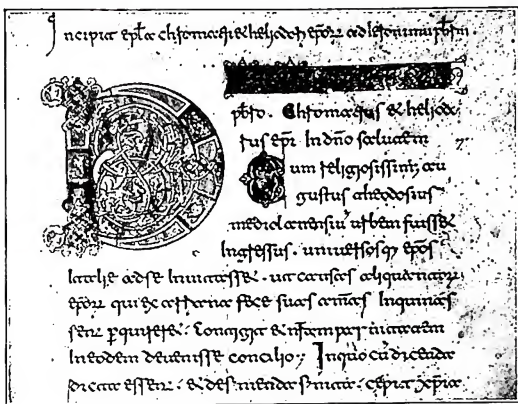 Incipit epła chromatii & heliodori epōrr ad Ieronimum pb̄rm
pb̄ro. Chromatius & heliodo
rus ep̄i. In dn̄o salutem
Cum religiosissim; au
gustus theodosius
mediolanensiū urbem fuiss&
Ingressus. universosq; ep̄os
Italie ad se Inuitasse&. ut causas aliquantorr
ep̄orr qui ex arriana fece suas animas Inquinas
sent pquirere&. Contigit & nr̄am paruitatem
In eodem deuenisse concilio; In quo cū dicenda
dicta essent. & desinienda sinita. cepit xp̄ia